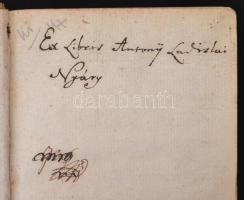 Ex Libris Antonÿ Ladislai
Nyáry
darabanth